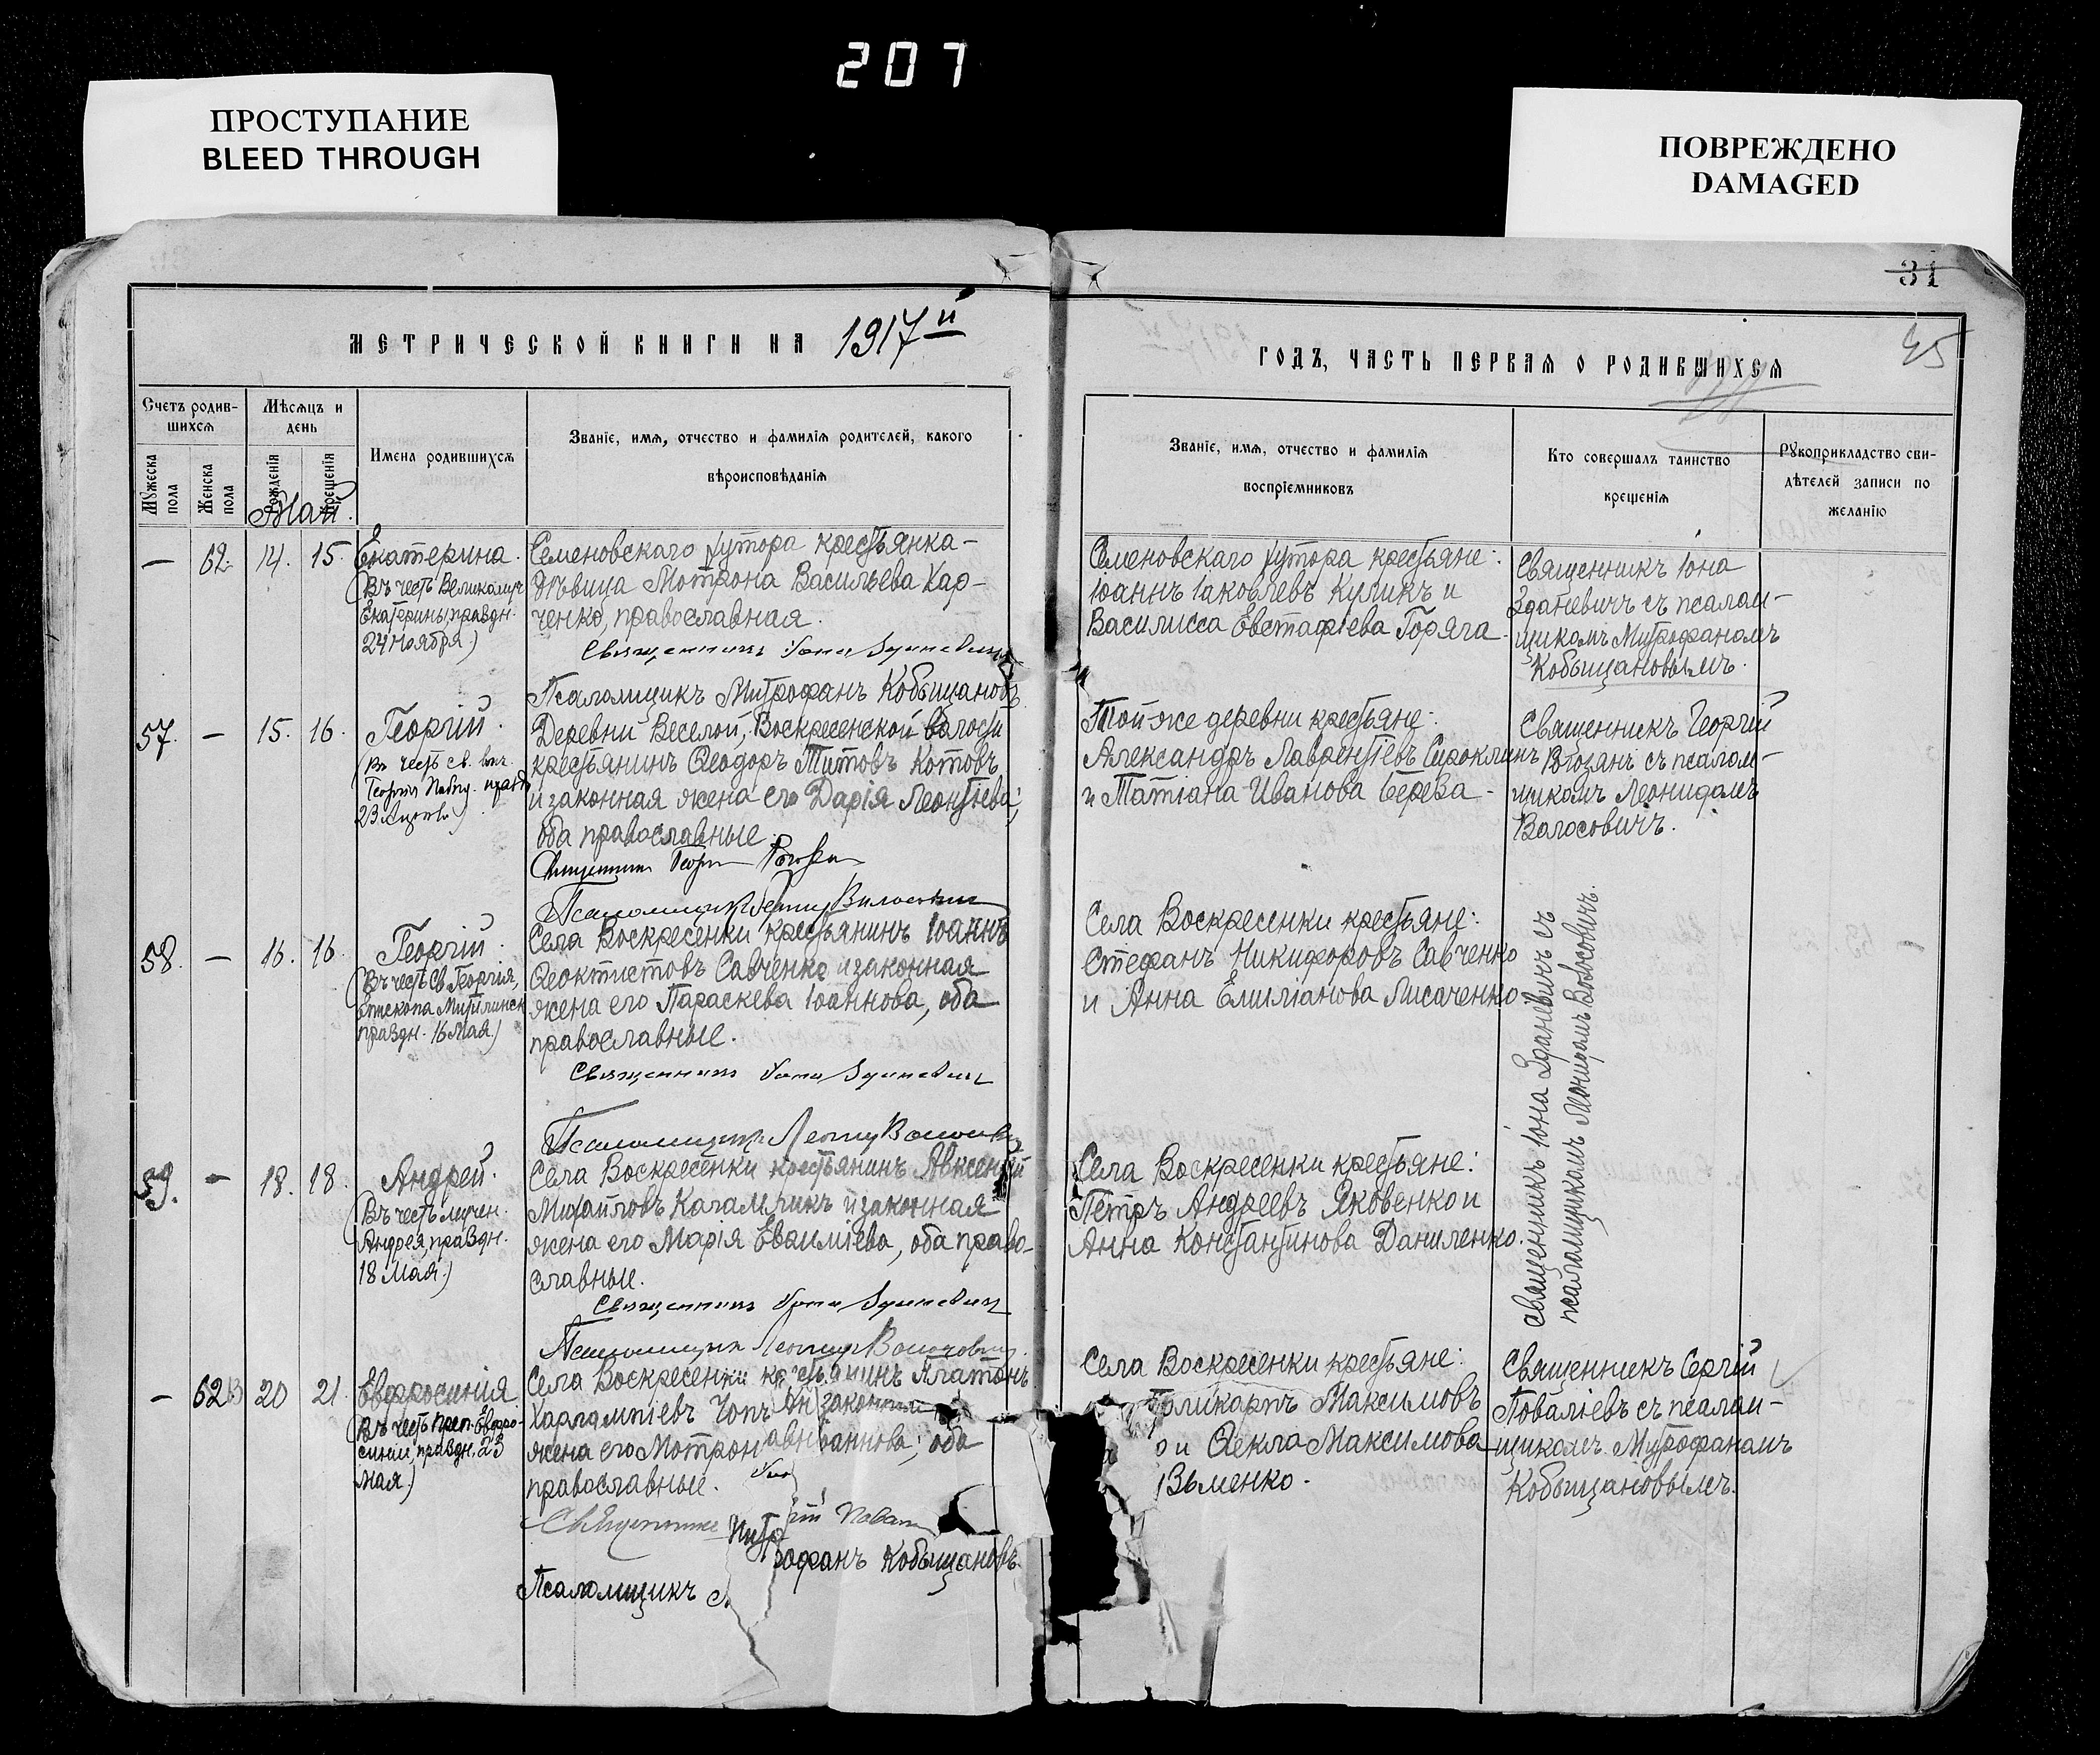 207
ПРОСТУПАНИЕ
BLEED THROUGH
ПОВРЕЖДЕНО
DAMAGED
31
45
МЕТРИЧЕСКОЙ КНИГИ НА 1917й
ГОДЪ, ЧАСТЬ ПЕРВАЯ О РОДИВШИХСЯ
Счетъ родив-
шихся
Мѣсяцъ и
день
Мужеска пола
Женска пола
Рожденія
Крещенія
Имена родившихся
Званіе, имя, отчество и фамилія родителей, какого
вѣроисповѣданія
Званіе, имя, отчество и фамилія
воспріемниковъ
Кто совершалъ таинство
крещенія
Рукоприкладство сви-
дѣтелей записи по
желанію
Май
— 62. 14. 15. Екатерина.
(Въ честь Великомуч
Екатерины, праздн.
24 ноября)
Семеновскаго хутора крестьянка-
дѣвица Мотрона Васильева Хар-
ченко, православная.
Священникъ Іона Зданевичъ
Псаломщикъ Митрофанъ Кобыщановъ
Семеновскаго хутора крестьяне:
Іоаннъ Іаковлевъ Куликъ и
Василисса Евстафіева Горяга
Священникъ Іона
Зданевичъ съ псалом-
щикомъ Митрофаномъ
Кобыщановымъ.
57. — 15. 16. Георгій.
(Въ честь св. вмч.
Георгія Побѣд. праздн
23 Апрѣля)
Деревни Веселой, Воскресенской волости
крестьянинъ Ѳеодоръ Титовъ Котовъ
и законная жена его Дарія Леонтіева;
оба православные.
Священникъ Георгій
Псаломщикъ
Той-же деревни крестьяне:
Александръ Лаврентіевъ
и Татіана Иванова Берева
Священникъ Георгій
съ псалом-
щикомъ Леонидомъ
Волосовичъ.
58. — 16. 16. Георгій.
(Въ честь Св. Георгія,
Епископа Митилинск
праздн. 16 Мая.)
Села Воскресенки крестьянинъ Іоаннъ
Ѳеоктистовъ Савченко и законная
жена его Параскева Іоаннова, оба
православные.
Священникъ Іона Зданевичъ
Псаломщикъ
Села Воскресенки крестьяне:
Стефанъ Никифоровъ Савченко
и Анна Емиліанова Лисаченко
Священникъ Іона Зданевичъ съ
псаломщикомъ Леонидомъ Волосовичъ.
59. — 18. 18. Андрей.
(Въ честь мучен.
Андрея, праздн.
18 Мая.)
Села Воскресенки крестьянинъ Авксентій
Михаиловъ Кагамликъ и законная
жена его Марія Евѳиміева, оба право-
славные.
Священникъ Іона Зданевичъ
Псаломщикъ
Села Воскресенки крестьяне:
Петръ Андреевъ Яковенко и
Анна Константинова Даниленко.
— 62 20 21. Евфросинія
(Въ честь преп. Евфро-
синіи, праздн. 23
мая.)
Села Воскресенки крестьянинъ Платонъ
Харлампіевъ Чопъ и законная
жена его Мотрона Іоаннова; оба
православные.
Священникъ
Псаломщикъ Митрофанъ Кобыщановъ
Села Воскресенки крестьяне:
Поликарпъ Максимовъ
и Ѳекла Максимова
Священникъ Сергій
Поваліевъ съ псалом-
щикомъ Митрофаномъ
Кобыщановымъ.